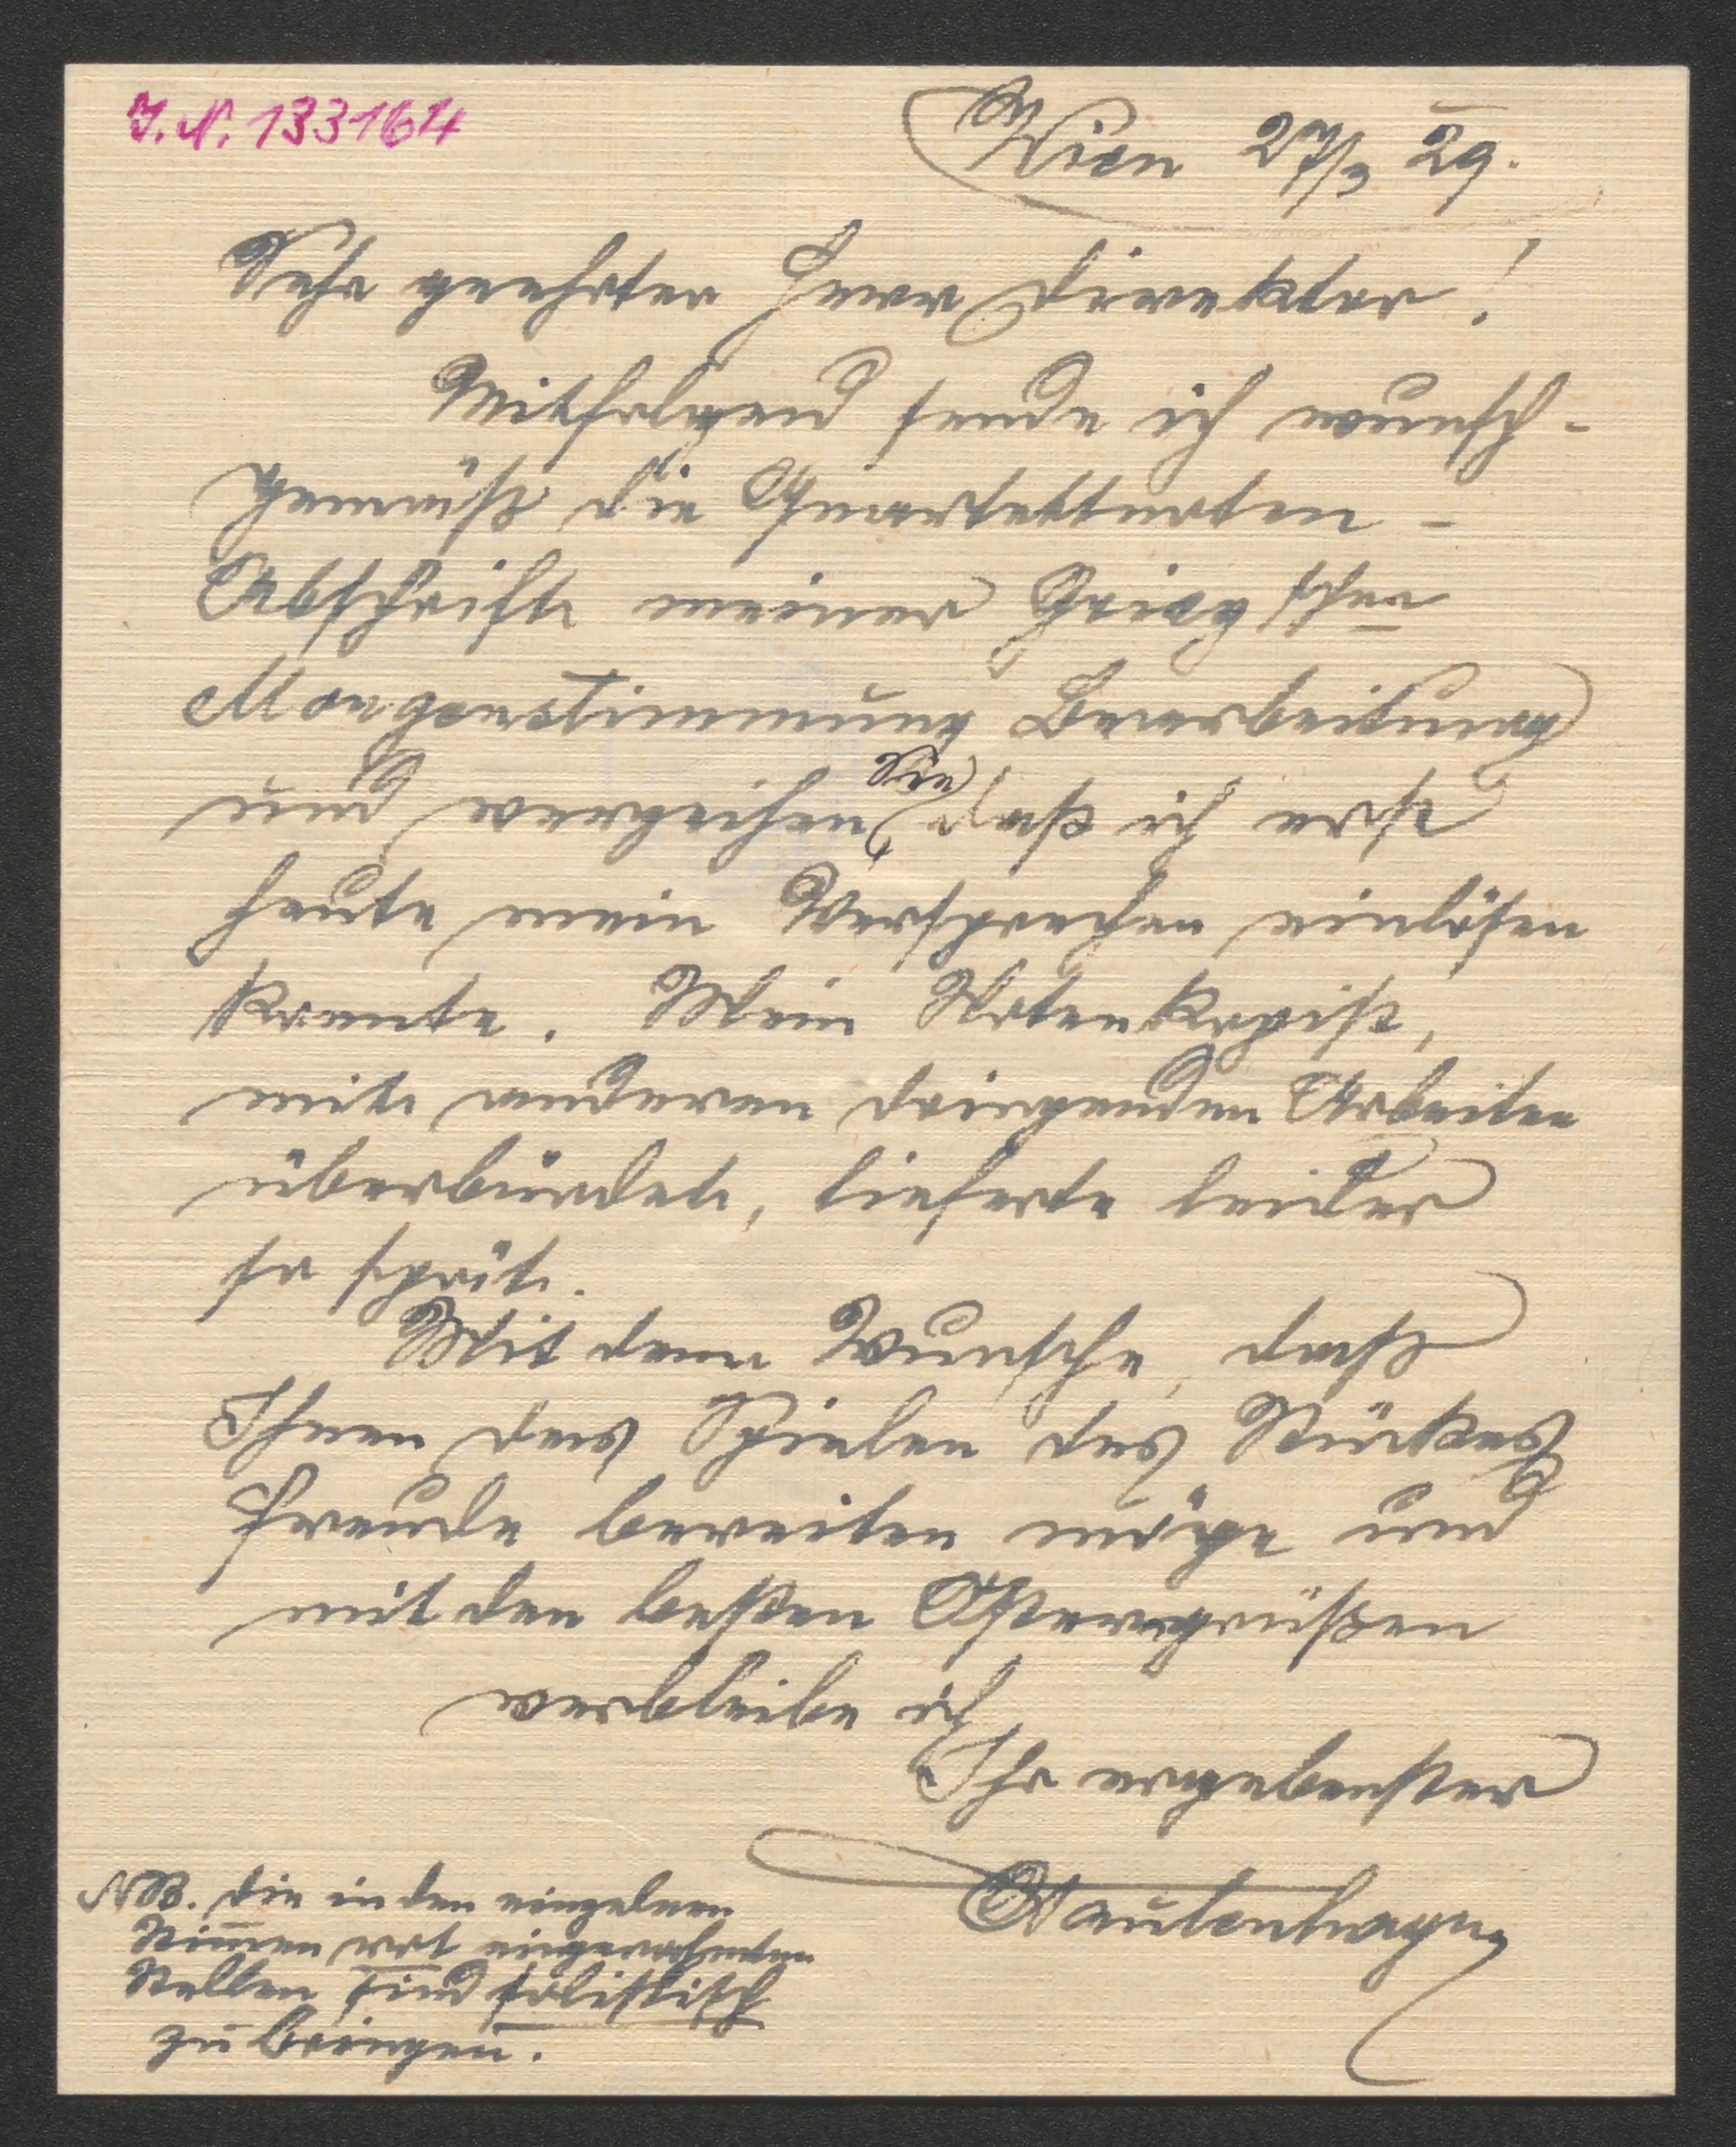 J.N. 133164
Wien 27/3 29.
Sehr geehrter Herr Direktor!
Mitfolgend sende ich wunsch-
gemäß die Quartettnoten-
Abschrift meiner Grieg'schen
Morgenstimmung Bearbeitung
und verzeihen Sie, daß ich erst
heute mein Versprechen einlösen
konnte. Mein Notenkopist,
mit anderen dringenden Arbeiten
überbürdet, lieferte leider
so spät.
Mit dem Wunsche, daß
Ihnen das Spielen des Stückes
Freude bereiten möge und
mit den besten Ostergrüßen
verbleibe ich
Ihr ergebenster
NB. Die in den einzelnen
Stim̅en rot eingerahmten
Stellen sind solistisch
zu bringen.